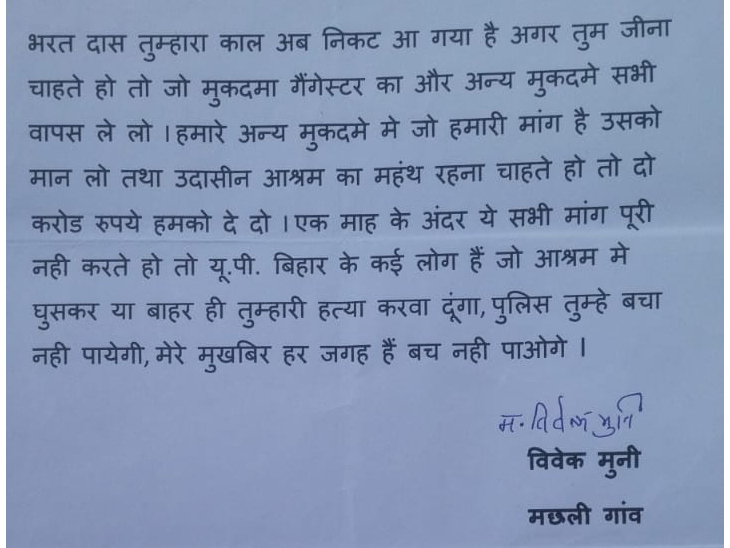 भरत दास तुम्हारा काल अब निकट आ गया है अगर तुम जीना
चाहते हो तो जो मुकदमा गैंगेस्टर का और अन्य मुकदमे सभी
वापस ले लो ।हमारे अन्य मुकदमे मे जो हमारी मांग है उसको
मान लो तथा उदासीन आश्रम का महंथ रहना चाहते हो तो दो
करोड रुपये हमको दे दो ।एक माह के अंदर ये सभी मांग पूरी
नही करते हो तो यू.पी. बिहार के कई लोग हैं जो आश्रम मे
घुसकर या बाहर ही तुम्हारी हत्या करवा दूंगा,पुलिस तुम्हे बचा
नही पायेगी,मेरे मुखबिर हर जगह हैं बच नही पाओगे ।
म. विवेक मुनि
विवेक मुनी
मछली गांव